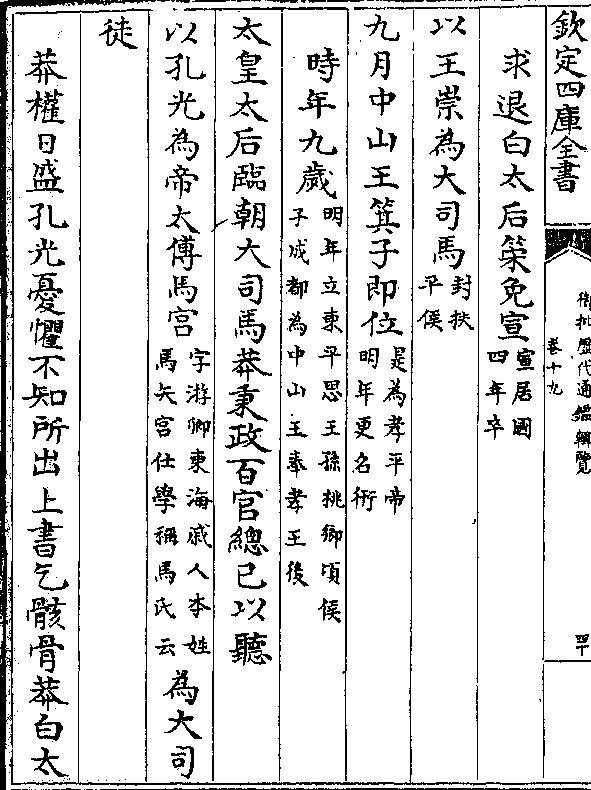 欽定四庫全書
御批歷代通鑑輯覽
卷十九
四十
求退白太后策免宣宣居國四年卒
以王崇為大司馬封扶平侯
九月中山王箕子即位是為孝平帝明年更名衎
時年九歲明年立東平思王孫桃鄉頃侯子成都為中山王奉孝王後
太皇太后臨朝大司馬莽秉政百官總己以聽
以孔光為帝太傅馬宮字游卿東海戚人本姓馬矢宮仕學稱馬氏云為大司
徒
莽權日盛孔光憂懼不知所出上書乞骸骨莽白太